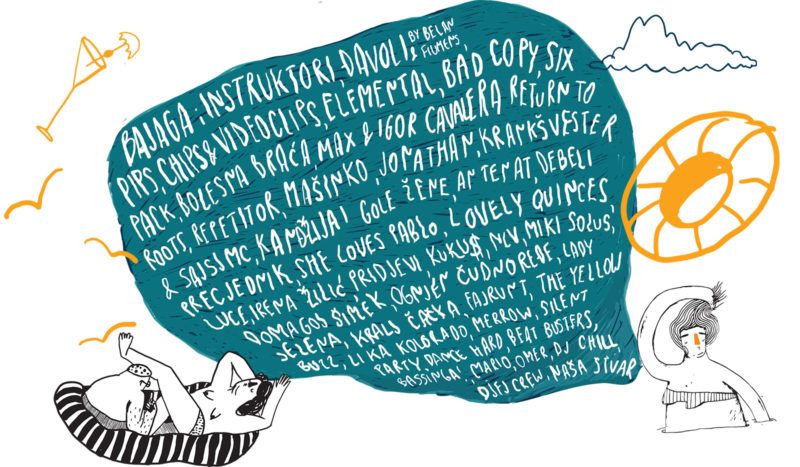 BAJAGA INSTRUKTORI, ĐAVOLI, BY BELAN
PIPS, CHIPS & VIDEOCLIPS, ELEMENTAL, BAD COPY, SIX
PACK, BOLESNA BRAĆA MAX & IGOR CAVALERA RETURN TO
ROOTS, REPETITOR, MAŠINKO JONATHAN, KRANKŠVESTER
& SAJSI MC, KANDŽIJA I GOLE ŽENE, ANTENAT, DEBELI
PRECJEDNIK, SHE LOVES PABLO, LOVELY QUINCES
LUCE IRENA ŽILIĆ PRIDJEVI KUKU$, NLV, MIKI SOLUS,
DOMAGOJ ŠIMEK, OGNJEN ČUDNOREĐE, LADY
SEZENA, KRALJ ČAČKA FAJRUNT, THE YELLOW
BUZZ, LIKA KOLORADO, MERROW, SILENT
PARTY DANCE, HARD BEAT BUSTERS,
BASSINGA! MARIO, OMER, DJ CHILL
CREW, NAŠA STVAR